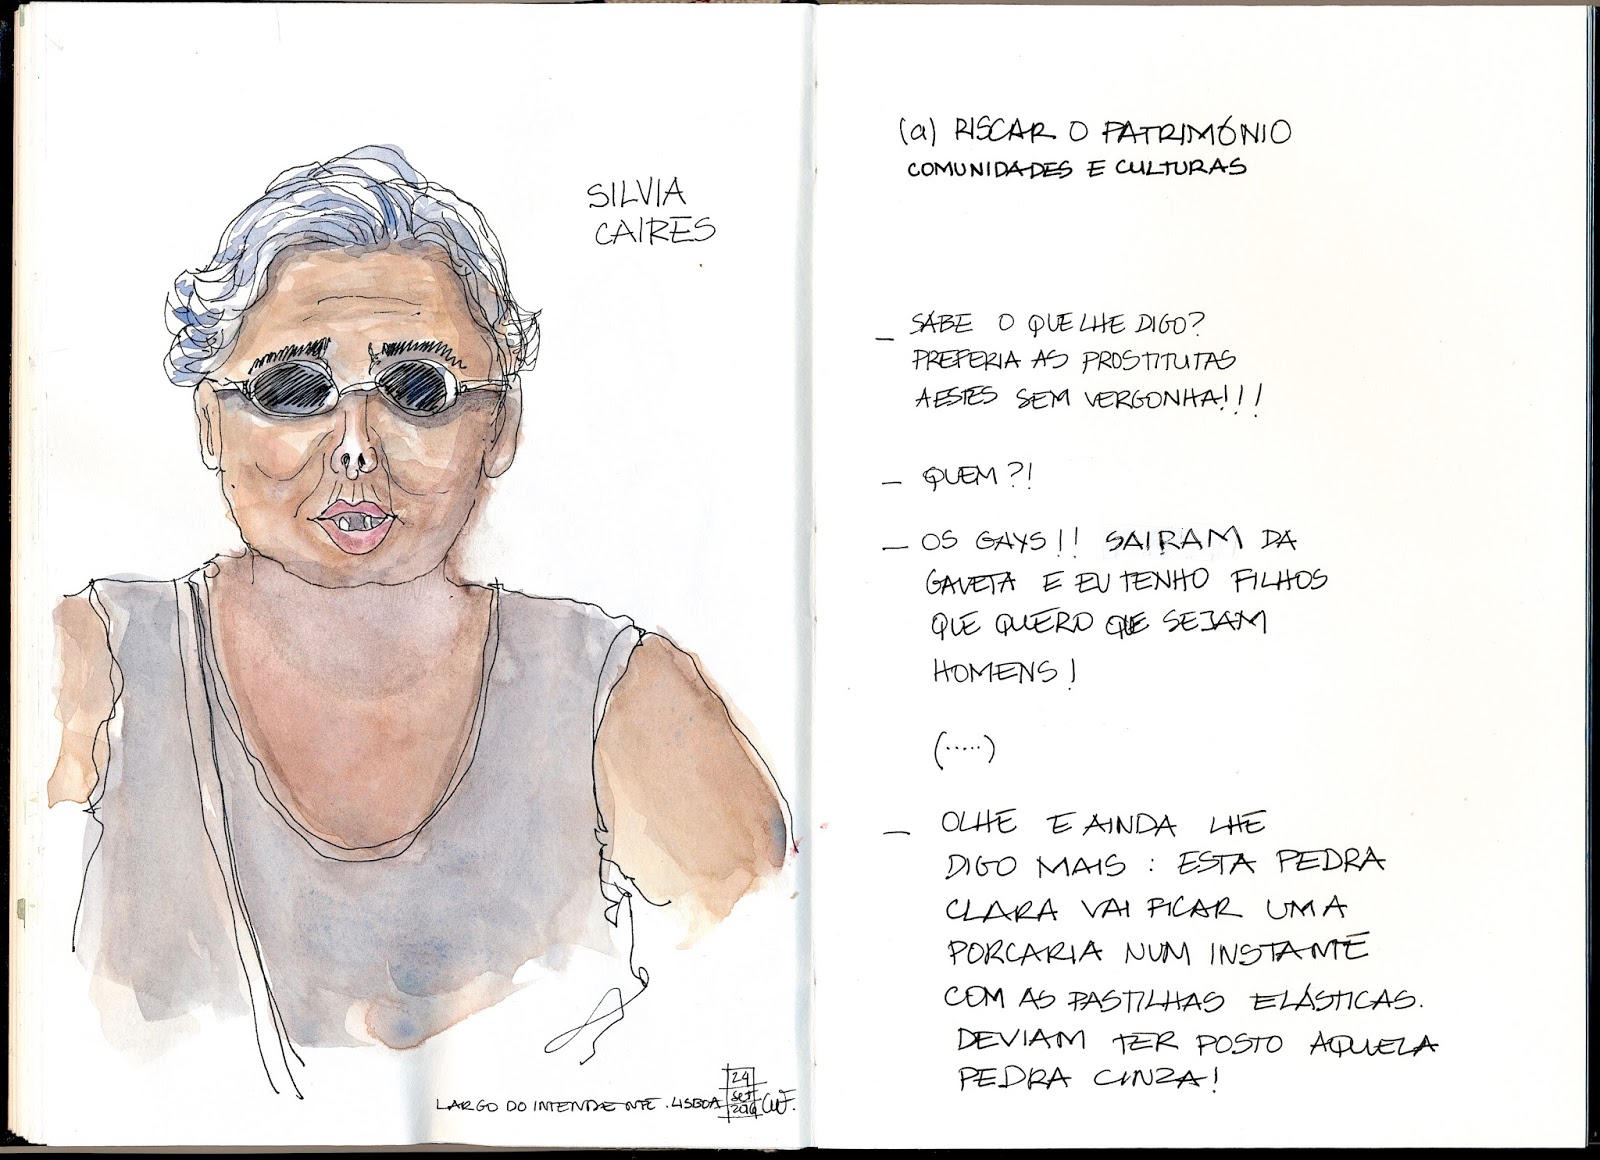 SILVIA
CAIRES
LARGO DO INTENDENTE . LISBOA
24
SET
(a) RISCAR O PATRIMÓNIO
COMUNIDADES E CULTURAS
_ SABE O QUE LHE DIGO?
PREFERIA AS PROSTITUTAS
A ESTES SEM VERGONHA!!!
_ QUEM?!
_ OS GAYS!! SAIRAM DA
GAVETA E EU TENHO FILHOS
QUE QUERO QUE SEJAM
HOMENS!
(.....)
_ OLHE E AINDA LHE
DIGO MAIS : ESTA PEDRA
CLARA VAI FICAR UMA
PORCARIA NUM INSTANTE
COM AS PASTILHAS ELÁSTICAS.
DEVIAM TER POSTO AQUELA
PEDRA CINZA!